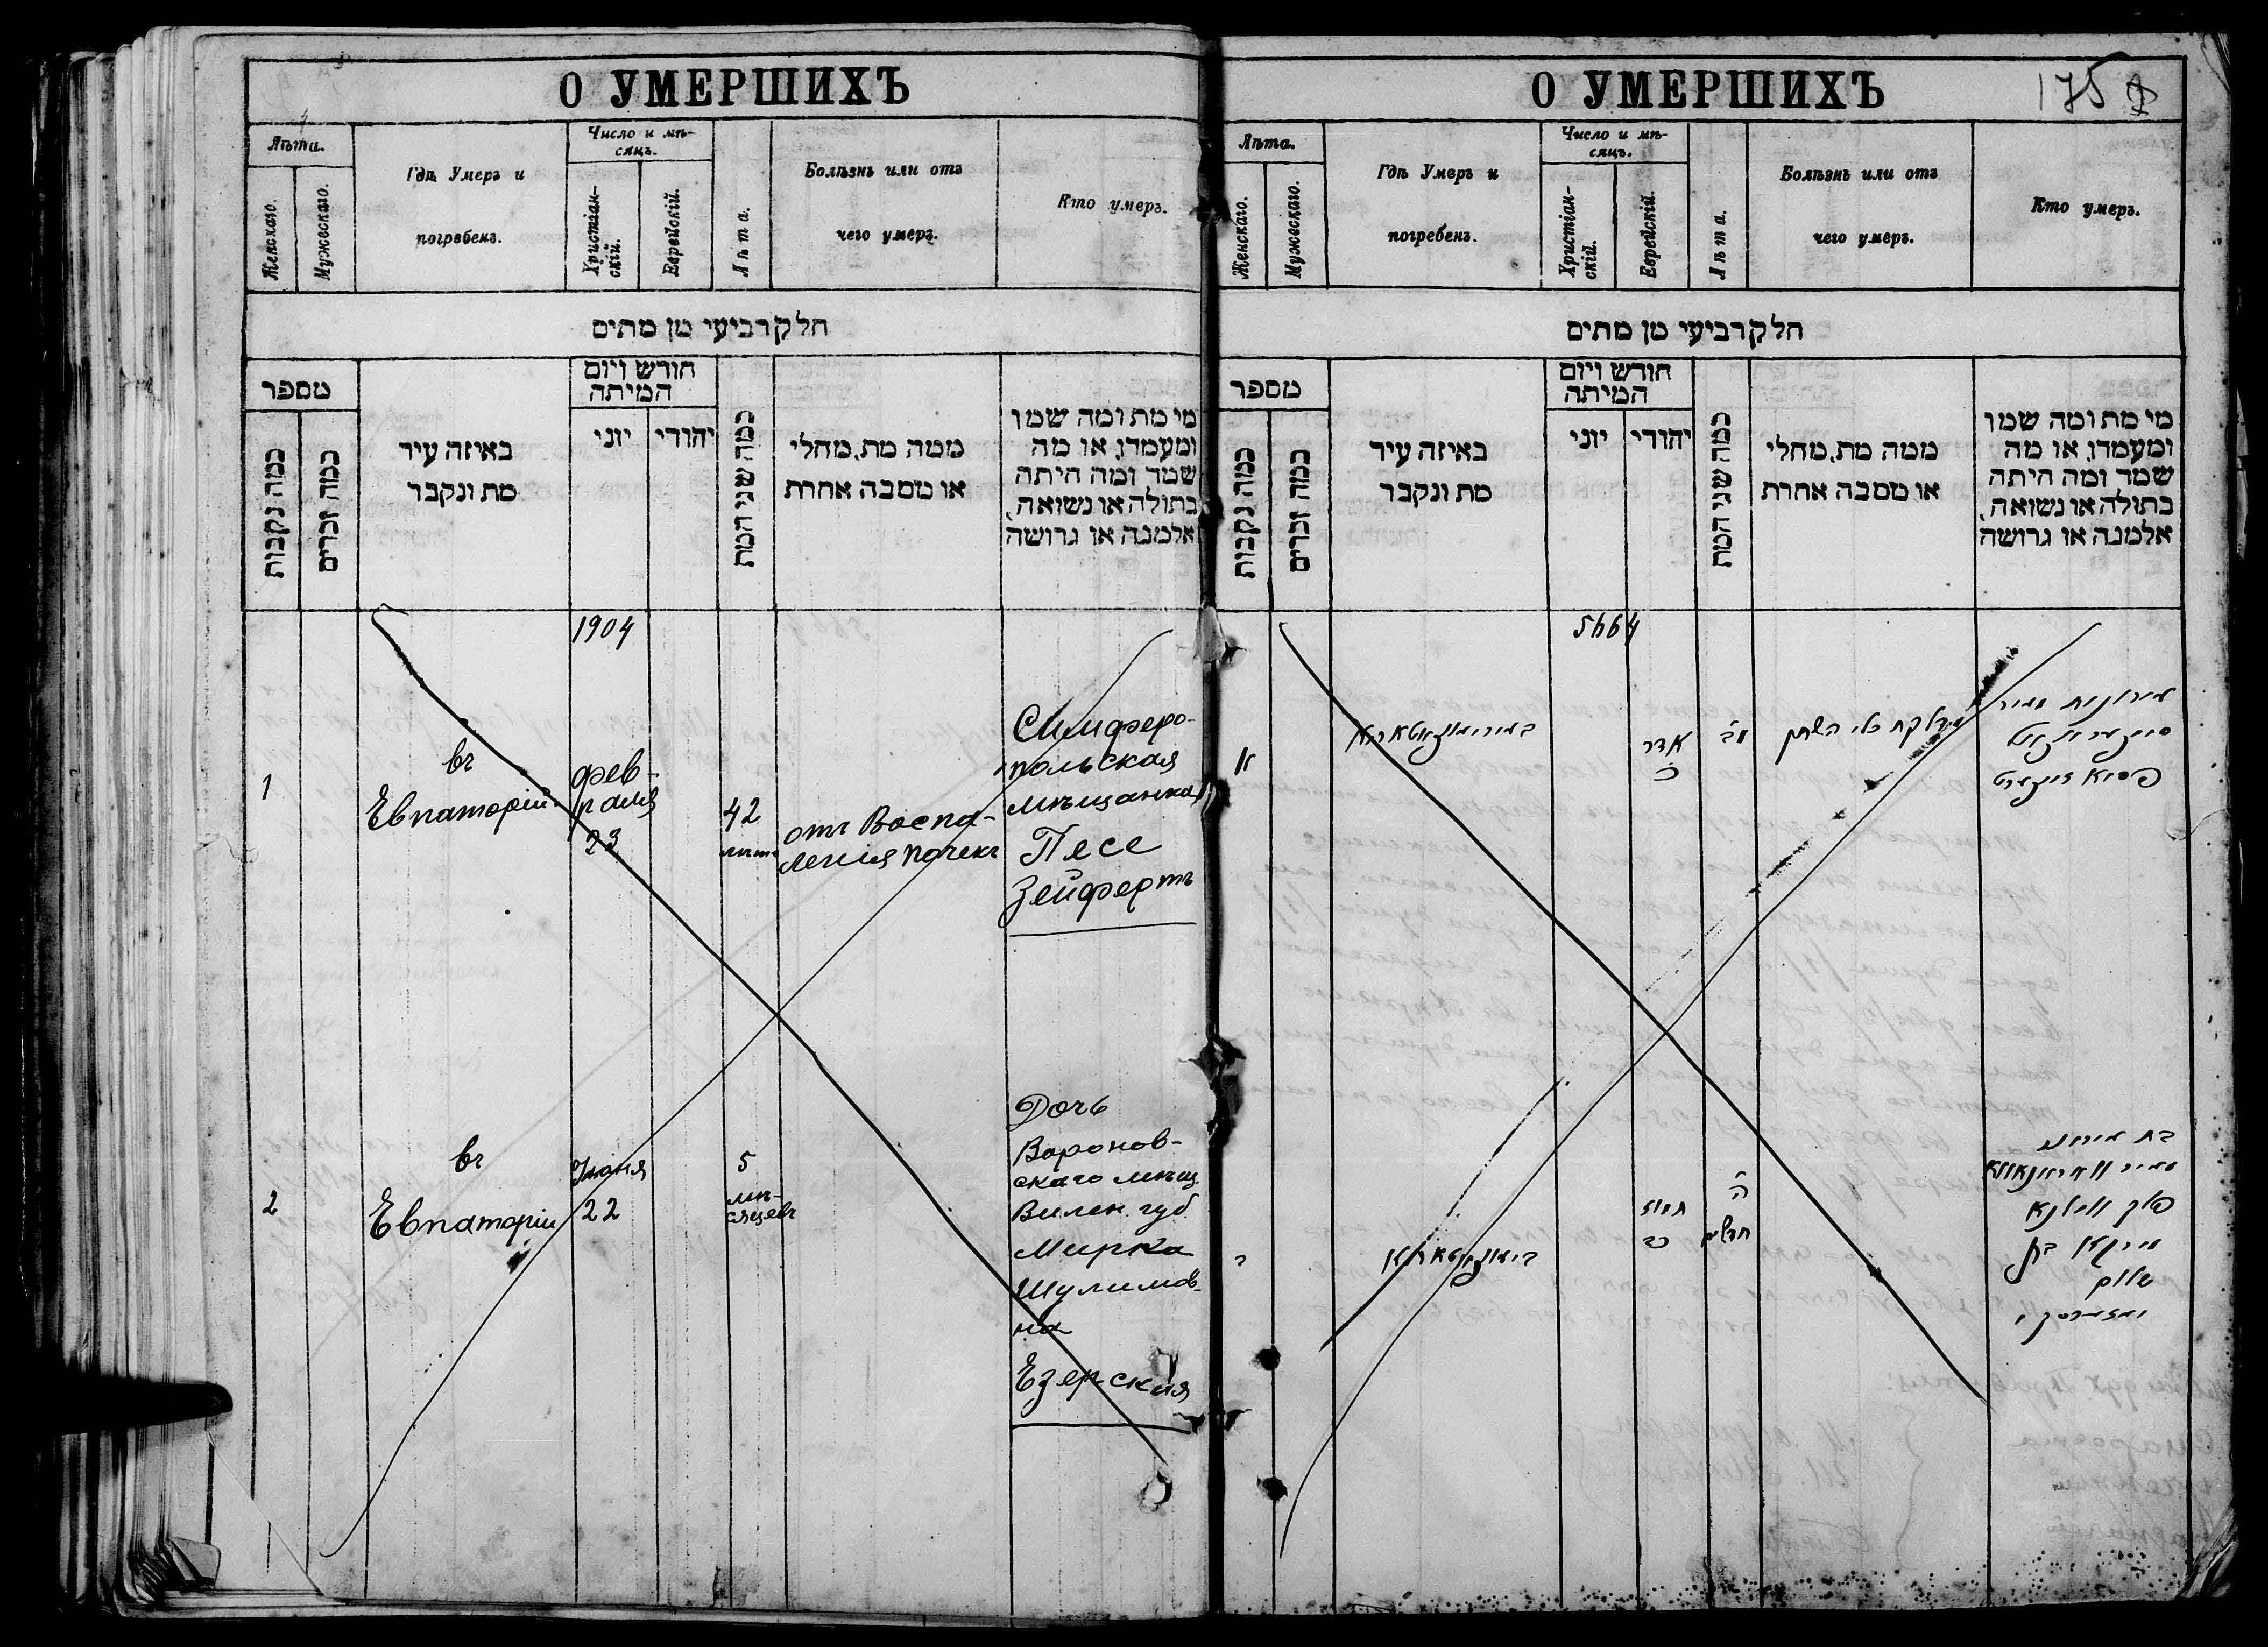 О УМЕРШИХЪ
Лѣта.
Женскаго.
Мужескаго.
Гдѣ Умеръ и
погребенъ.
Число и мѣ-
сяцъ.
Христіан-
скій.
Еврейскій.
Лѣта.
Болѣзнь или отъ
чего умеръ.
Кто умеръ.
חלק רביעי מן מתים
מספר
כמה נקבות
כמה זכרים
באיזה עיר
מת ונקבר
חודש ויום
המיתה
יוני
יהודי
כמה שני המת
ממה מת, מחלי
או מסבה אחרת
מי מת ומה שמו
ומעמדו, או מה
שמה ומה היתה
בתולה או נשואה,
אלמנה או גרושה
1904
1
въ
Евпаторіи
фев-
раля
23
42
лѣтъ
отъ Воспа-
ленія почекъ
Симферо-
польская
мѣщанка
Песе
Зейфертъ
2
въ
Евпаторіи
Іюня
22
5
мѣ-
сяцевъ
Дочь
Воронов-
скаго мѣщ.
Вилен. губ.
Мирка
Шулимов-
на
Езерская
О УМЕРШИХЪ
175
Лѣта.
Женскаго.
Мужескаго.
Гдѣ Умеръ и
погребенъ.
Число и мѣ-
сяцъ.
Христіан-
скій.
Еврейскій.
Лѣта.
Болѣзнь или отъ
чего умеръ.
Кто умеръ.
חלק רביעי מן מתים
מספר
כמה נקבות
כמה זכרים
באיזה עיר
מת ונקבר
חודש ויום
המיתה
יוני
יהודי
כמה שני המת
ממה מת, מחלי
או מסבה אחרת
מי מת ומה שמו
ומעמדו, או מה
שמה ומה היתה
בתולה או נשואה,
אלמנה או גרושה
5664
א
אדר
כ
מב
מדלקת כלי השתן
מעיר
פסיא זייפערט
תמוז
כב
ה
חדשים
בת
מעיר
פלך ווילנא
מירקא בת
שלום